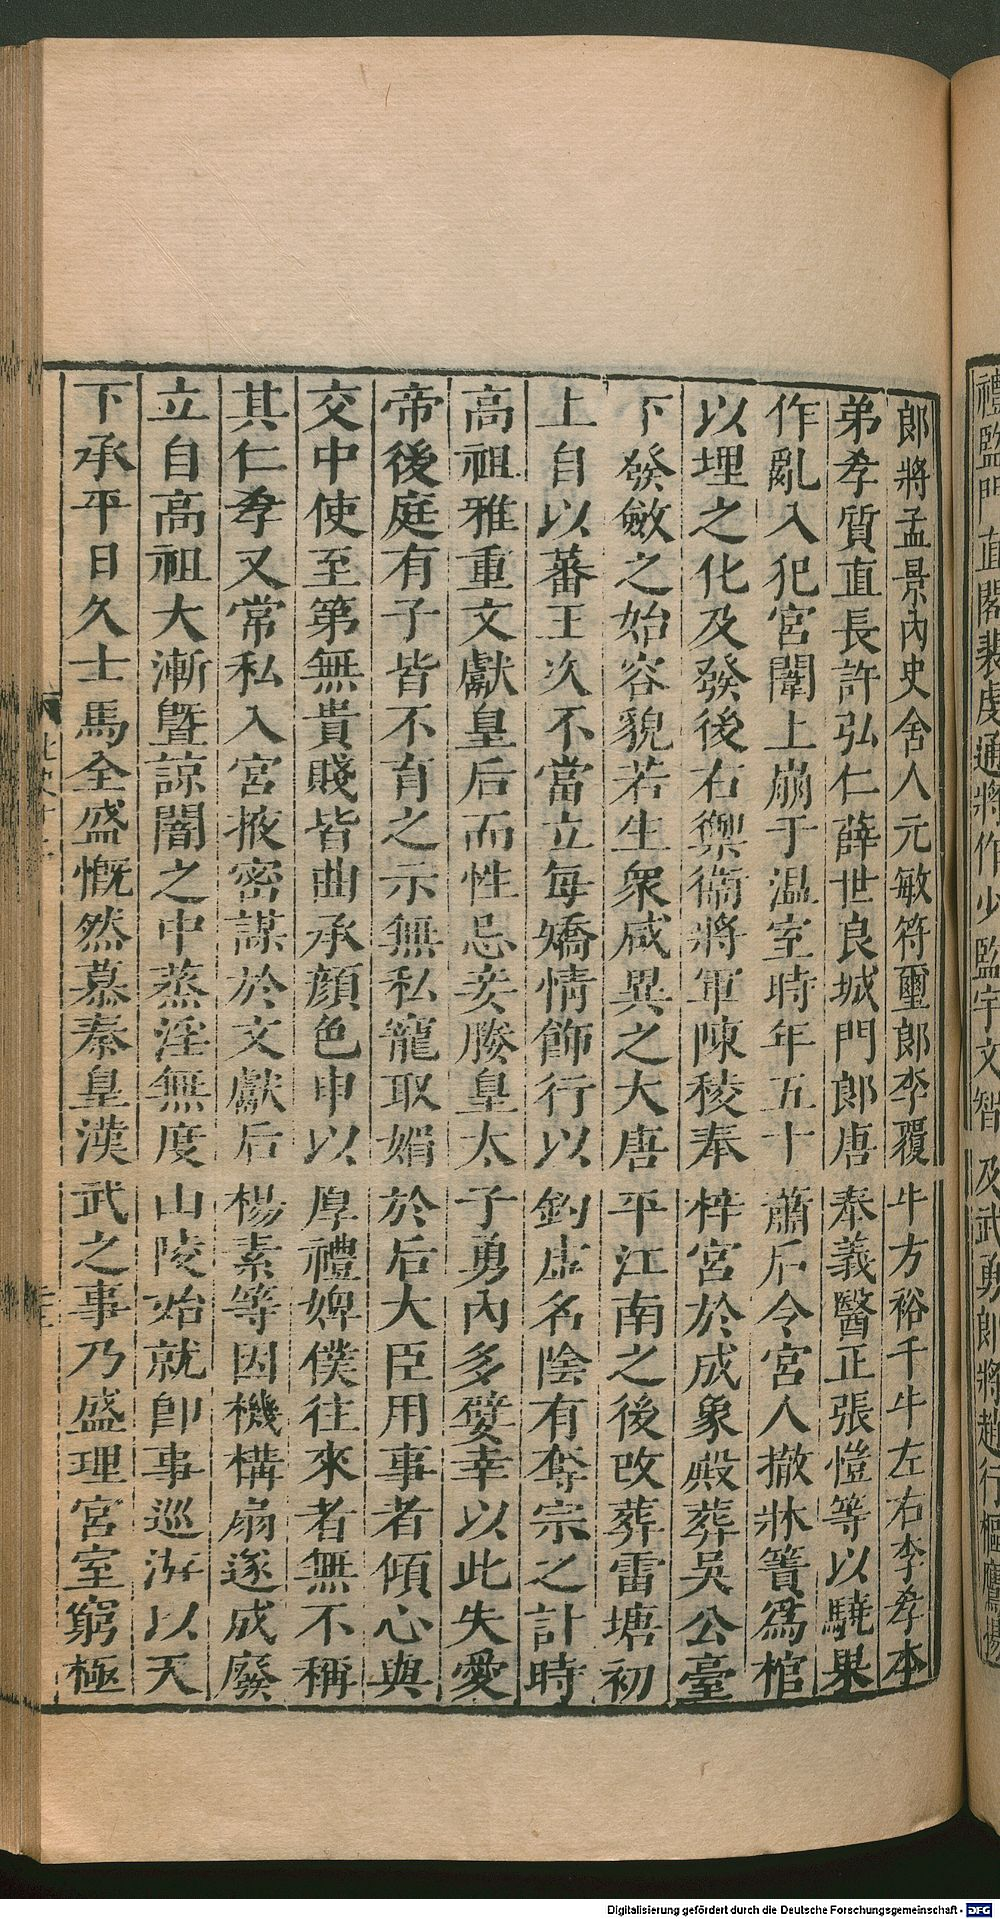 禮監門直閤裴虔通將作少監宇文智及武勇郎將趙行樞鷹揚
郎將孟景內史舍人元敏符璽郎李覆牛方裕千牛左右李孝本
弟孝質直長許弘仁薛世良城門郎唐奉義醫正張愷等以驍果
作亂入犯宮闈上崩于温室時年五十蕭后令宮人撤牀簀爲棺
以埋之化及發後右禦衞將軍陳稜奉梓宮於成象殿葬吳公臺
下發斂之始容貌若生衆咸異之大唐平江南之後改葬雷塘初
上自以蕃王次不當立每矯情飾行以釣虛名陰有奪宗之計時
高祖雅重文獻皇后而性忌妾媵皇太子勇內多嬖幸以此失愛
帝後庭有子皆不育之示無私寵取媚於后大臣用事者傾心與
交中使至第無貴賤皆曲承顏色申以厚禮婢僕往來者無不稱
其仁孝又常私入宮掖密謀於文獻后楊素等因機構扇遂成廢
立自高祖大漸暨諒闇之中蒸淫無度山陵始就卽事巡游以天
下承平日久士馬全盛慨然慕秦皇漢武之事乃盛理宮室窮極
Digitalisierung gefördert durch die Deutsche Forschungsgemeinschaft - DFG